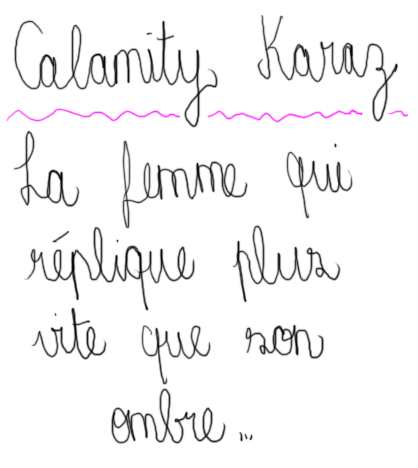 Calamity Karaz
La femme qui
réplique plus
vite que son
ombre...